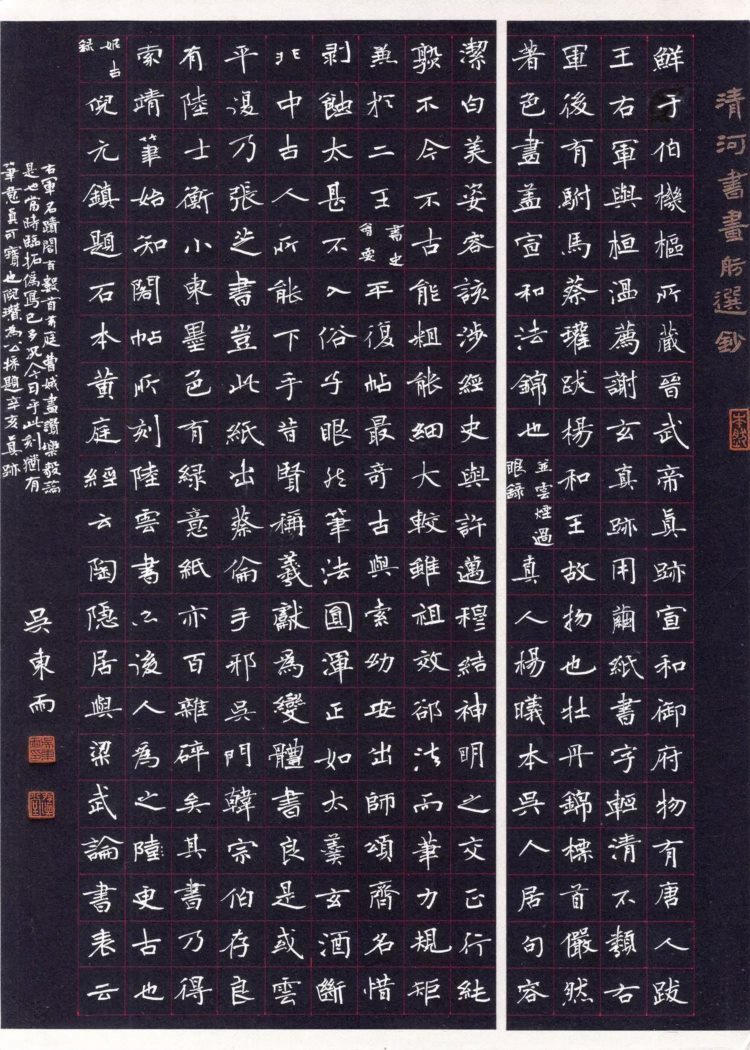 清河書畫舫選鈔
鮮于伯機樞所藏晉武帝真跡宣和御府物有唐人跋
王右軍與桓溫薦謝玄真跡用繭紙書字輕清不類右
軍後有駙馬蔡瓘跋楊和王故物也牡丹錦標首儼然
著色畫蓋宣和法錦也並雲煙過眼錄真人楊曦本吳人居句容
潔白美姿容該涉經史與許邁穆結神明之交正行純
斅不今不古能粗能細大較雖祖效郗法而筆力規矩
兼於二王書史會要平復帖最奇古與索幼安出師頌齊名惜
剝蝕太甚不入俗子眼然筆法圓渾正如太羹玄酒斷
非中古人所能下手昔賢稱羲獻為變體書良是或雲
平復乃張芝書豈此紙出蔡倫手邪吳門韓宗伯存良
有陸士衡小東墨色有綠意紙亦百雜碎矣其書乃得
索靖筆始知閣帖所刻陸雲書亦後人為之陸更古也
妮古錄倪元鎮題石本黃庭經云陶隱居與梁武論書表云
右軍名蹟閣有數首黃庭曹娥畫讚樂毅論
是也當時臨拓偽寫已多況今日乎此刻猶有
筆意真可寶也倪瓚為公擇題辛亥真跡
吳東雨